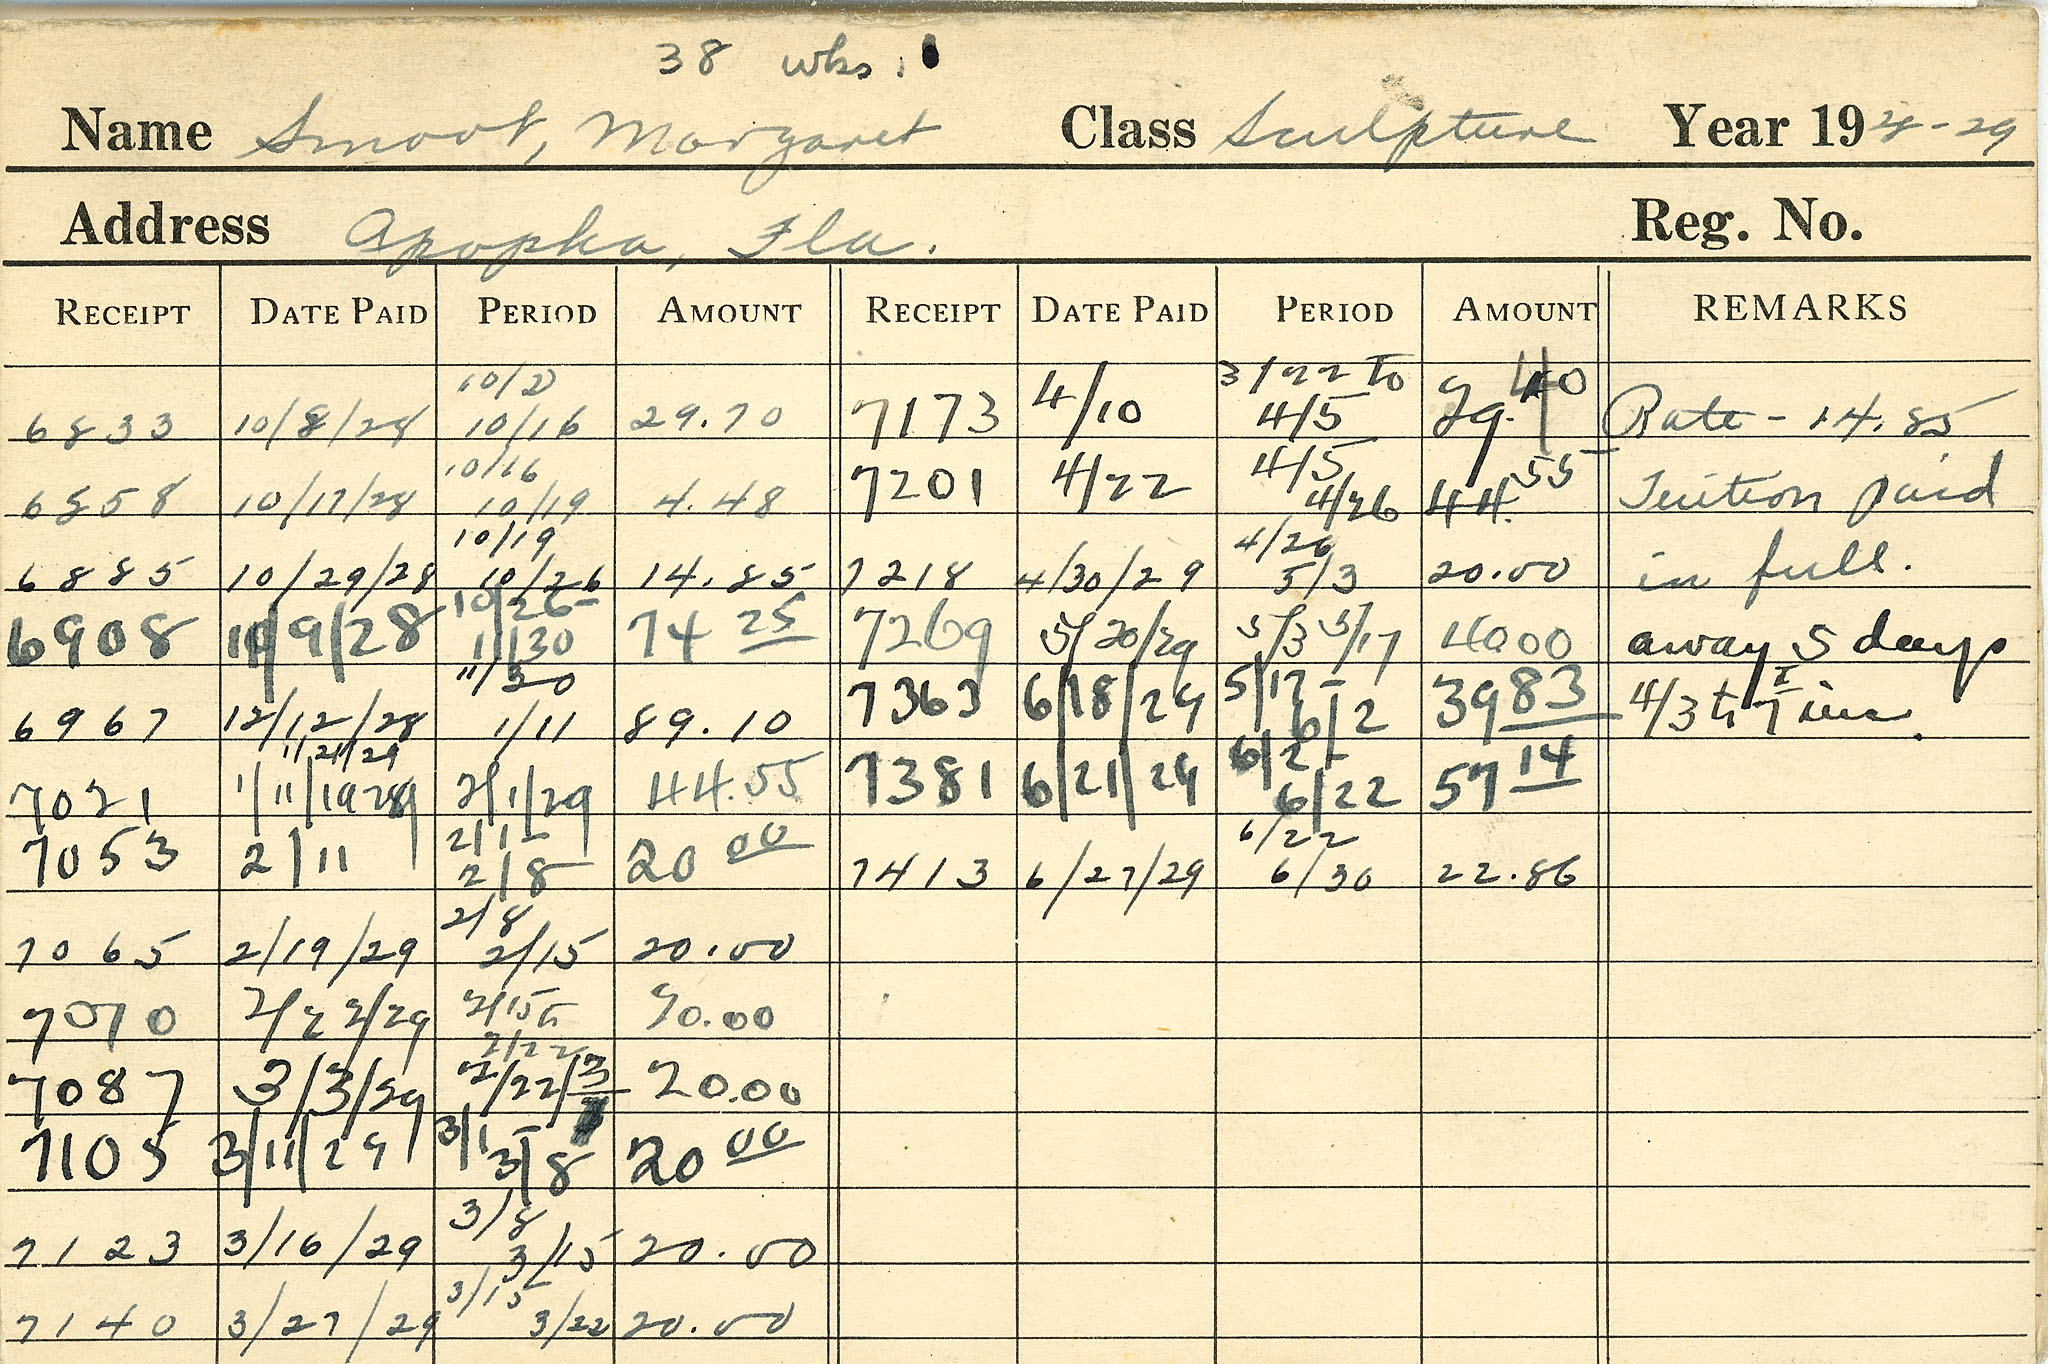 38 wks.
Name Smoot, Margaret Class Sculpture Year 1928-29
Address Apopka, Fla. Reg. No.
RECEIPT DATE PAID PERIOD AMOUNT RECEIPT DATE PAID PERIOD AMOUNT REMARKS
10/2 3/22 to
6833 10/8/28 10/16 29.70 7173 4/10 4/5 29.40 Rate - 14.85
10/16 4/5
6858 10/17/28 10/19 4.48 7201 4/22 4/26 44.55 Tuition paid
10/19 4/26
6885 10/29/28 10/26 14.85 7218 4/30/29 5/3 20.00 in full.
10/26-
6908 10/9/28 11/30 74 25 7269 5/20/29 5/3 5/17 40 00 away 5 days
11/30 5/17-
6967 12/12/28 1/11 89.10 7363 6/18/29 6/2 39 83 4/3
1/11 6/2-
7021 1/11/1929 2/1/29 44.55 7381 6/21/29 6/22 57 14
2/1- 6/22
7053 2/11 2/8 20 00 7413 6/27/29 6/30 22.86
2/8
7065 2/19/29 2/15 20.00
2/15 to
7070 2/22/29 2/22 20.00
7087 3/3/29 2/22/3 20.00
3/1-
7105 3/11/29 3/8 20 00
3/8
7123 3/16/29 3/15 20.00
3/15
7140 3/27/29 3/22 20.00